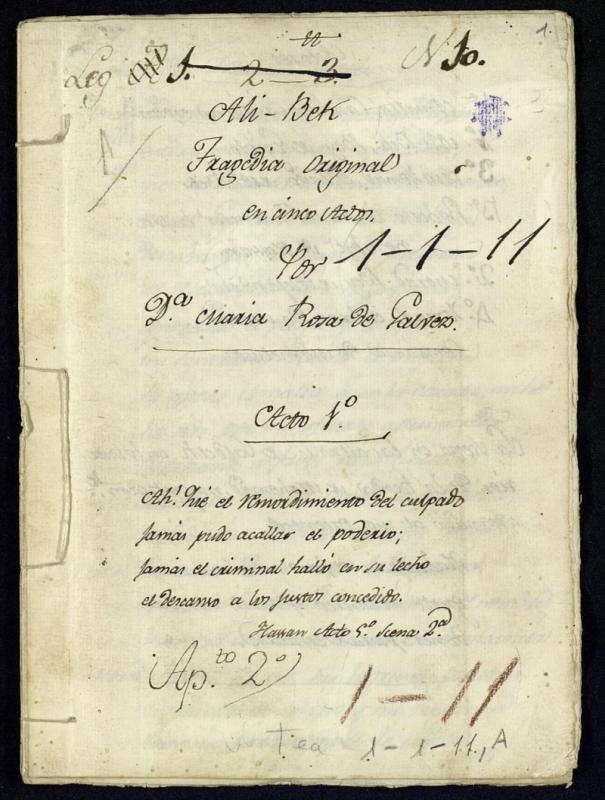 Leg 1. 2 3. N 10.
1.
Ali-Bek
Tragedia original
en cinco Actos.
Por 1-1-11
D.ª Maria Rosa de Galvez.
Acto 1.º
Ah! Que el remordimiento del culpado
Jamas pudo acallar el poderio;
Jamas el criminal halló en su lecho
el descanso a los justos concedido.
Hassan Acto 5.º Scena 2.ª
Ap.to 2.º
1-11
Tea 1-1-11, A